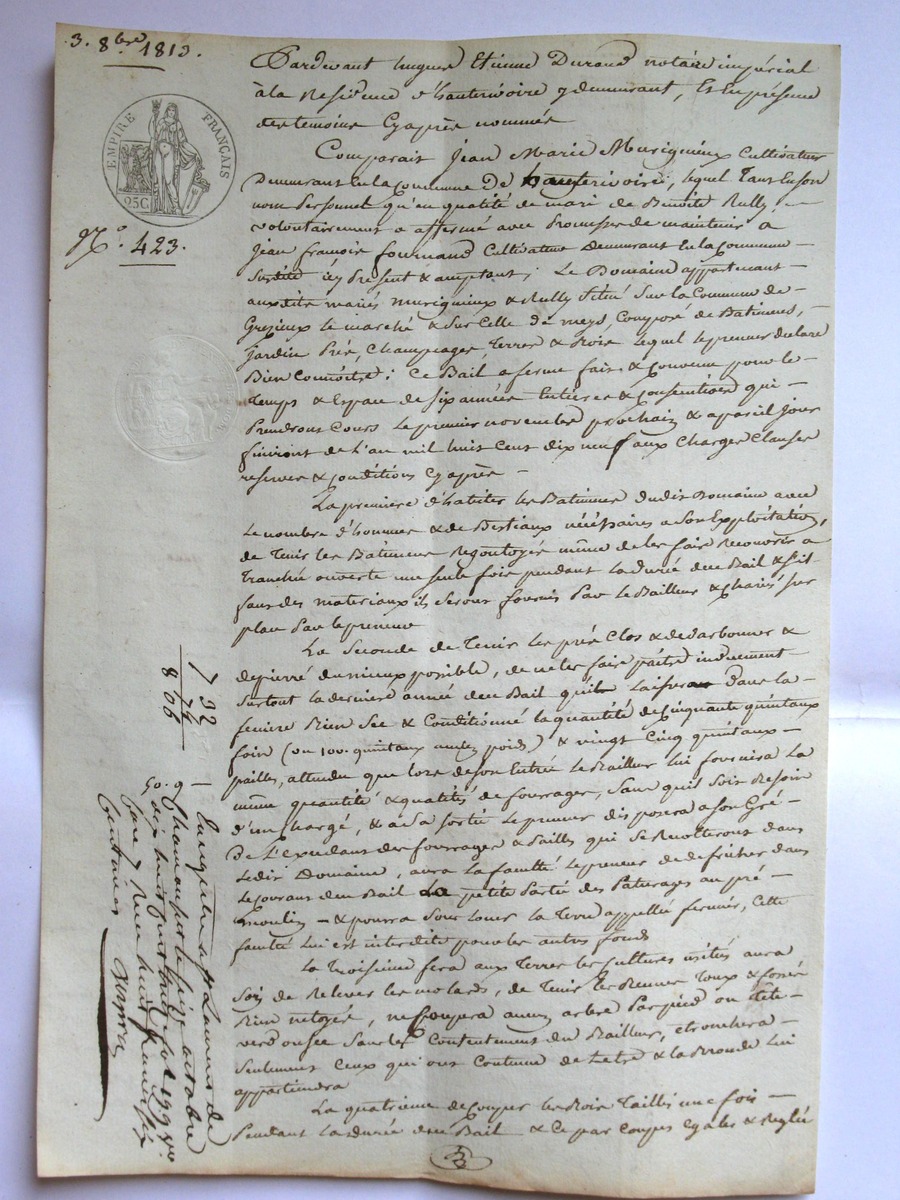 3. 8bre 1813.
EMPIRE FRANÇAIS
25C
No. 423.
Pardevant hugues Etienne Durand notaire impérial
à la Residence d'hauterivoire y demeurant, Et En présence
des témoins Cyaprès nommés
Comparait Jean Marie Murigneux Cultivateur
Demeurant En la Commune De hauterivoire, lequel Tant En son
nom Personnel qu'en qualité de mari de Benoite Rully
volontairement a affermé avec Promesse de maintenir a
Jean françois fournand Cultivateur Demeurant En la Commune
Susdite icy Présent & acceptant; Le Domaine appartenant
auxdits mariés Murigneux & Rully Situé Sur la Commune de
Grezieux le marché & Sur Celle de meys, Composé de Batimens,
Jardin Prés, Champeages Terres & Bois lequel le preneur declare
Bien Connoître; Ce Bail a ferme fait & Convenu pour le
Temps & Espace de Six années Entières & Consécutives qui
Prendront Cours Le premier novembre prochain & a pareil jour
finiront de l'an mil huit Cent dix neuf aux Charges Clauses
reserves & Conditions Cyaprès
La première d'habiter les Batimens dudit Domaine avec
Le nombre d'hommes & de Bestiaux nécéssaires a Son Exploitation,
de Tenir les Bâtimens Regoutoyés même de les faire Recouvrir a
Tranchée ouverte une seule fois pendant la durée du Bail & S'il
faut des materiaux ils Seront fournis Par le Bailleur & Chariés Sur
place Par le preneur
La Seconde de Tenir les prés Clos &
depierré du mieux possible, de ne les faire paître induement
Surtout la derniere année du Bail qu'il Laissera Dans la
feniere Bien Sec & Conditionné la quantité de Cinquante quintaux
foin (ou 100. quintaux ancien poids) & vingt Cinq quintaux
pailles, attendu que lors de son Entrée Le Bailleur lui fournira la
même quantité & qualités de fourrages, Sans qu'il Soit Besoin
d'en Chargé, & a Sa Sortie Le preneur disposera a Son Gré
De L'excedant des fourrages & Pailles qui Se Recolteront dans
Ledit Domaine, aura la faculté Le preneur de defricher dans
Le Courant du Bail La petite Partie des Paturages au pré
moulin & pourra Sous louer la Terre appellée fermée, Cette
faculté Lui est interdite pour les autres fonds
La Troisieme fera aux Terres les Cultures usités aura
Soin de Relever les molards, de Tenir les
Bien netoyés, ne Coupera aucun arbre Par pied ou Tête
verd ou sec Sans le Contentement du Bailleur,
Seulement Ceux qui ont Coutume de L'etre & la Bronde Lui
appartiendra
La quatrieme de Couper les Bois Taillis une fois
Pendant la durée du Bail & Ce par Coupes Egales & Reglée
7 32
74
8 06
Enregistré a St Laurent de
Chamousset le six octobre
dix huit cent treize fol 199 Vo
Reçu huit francs six
Centimes